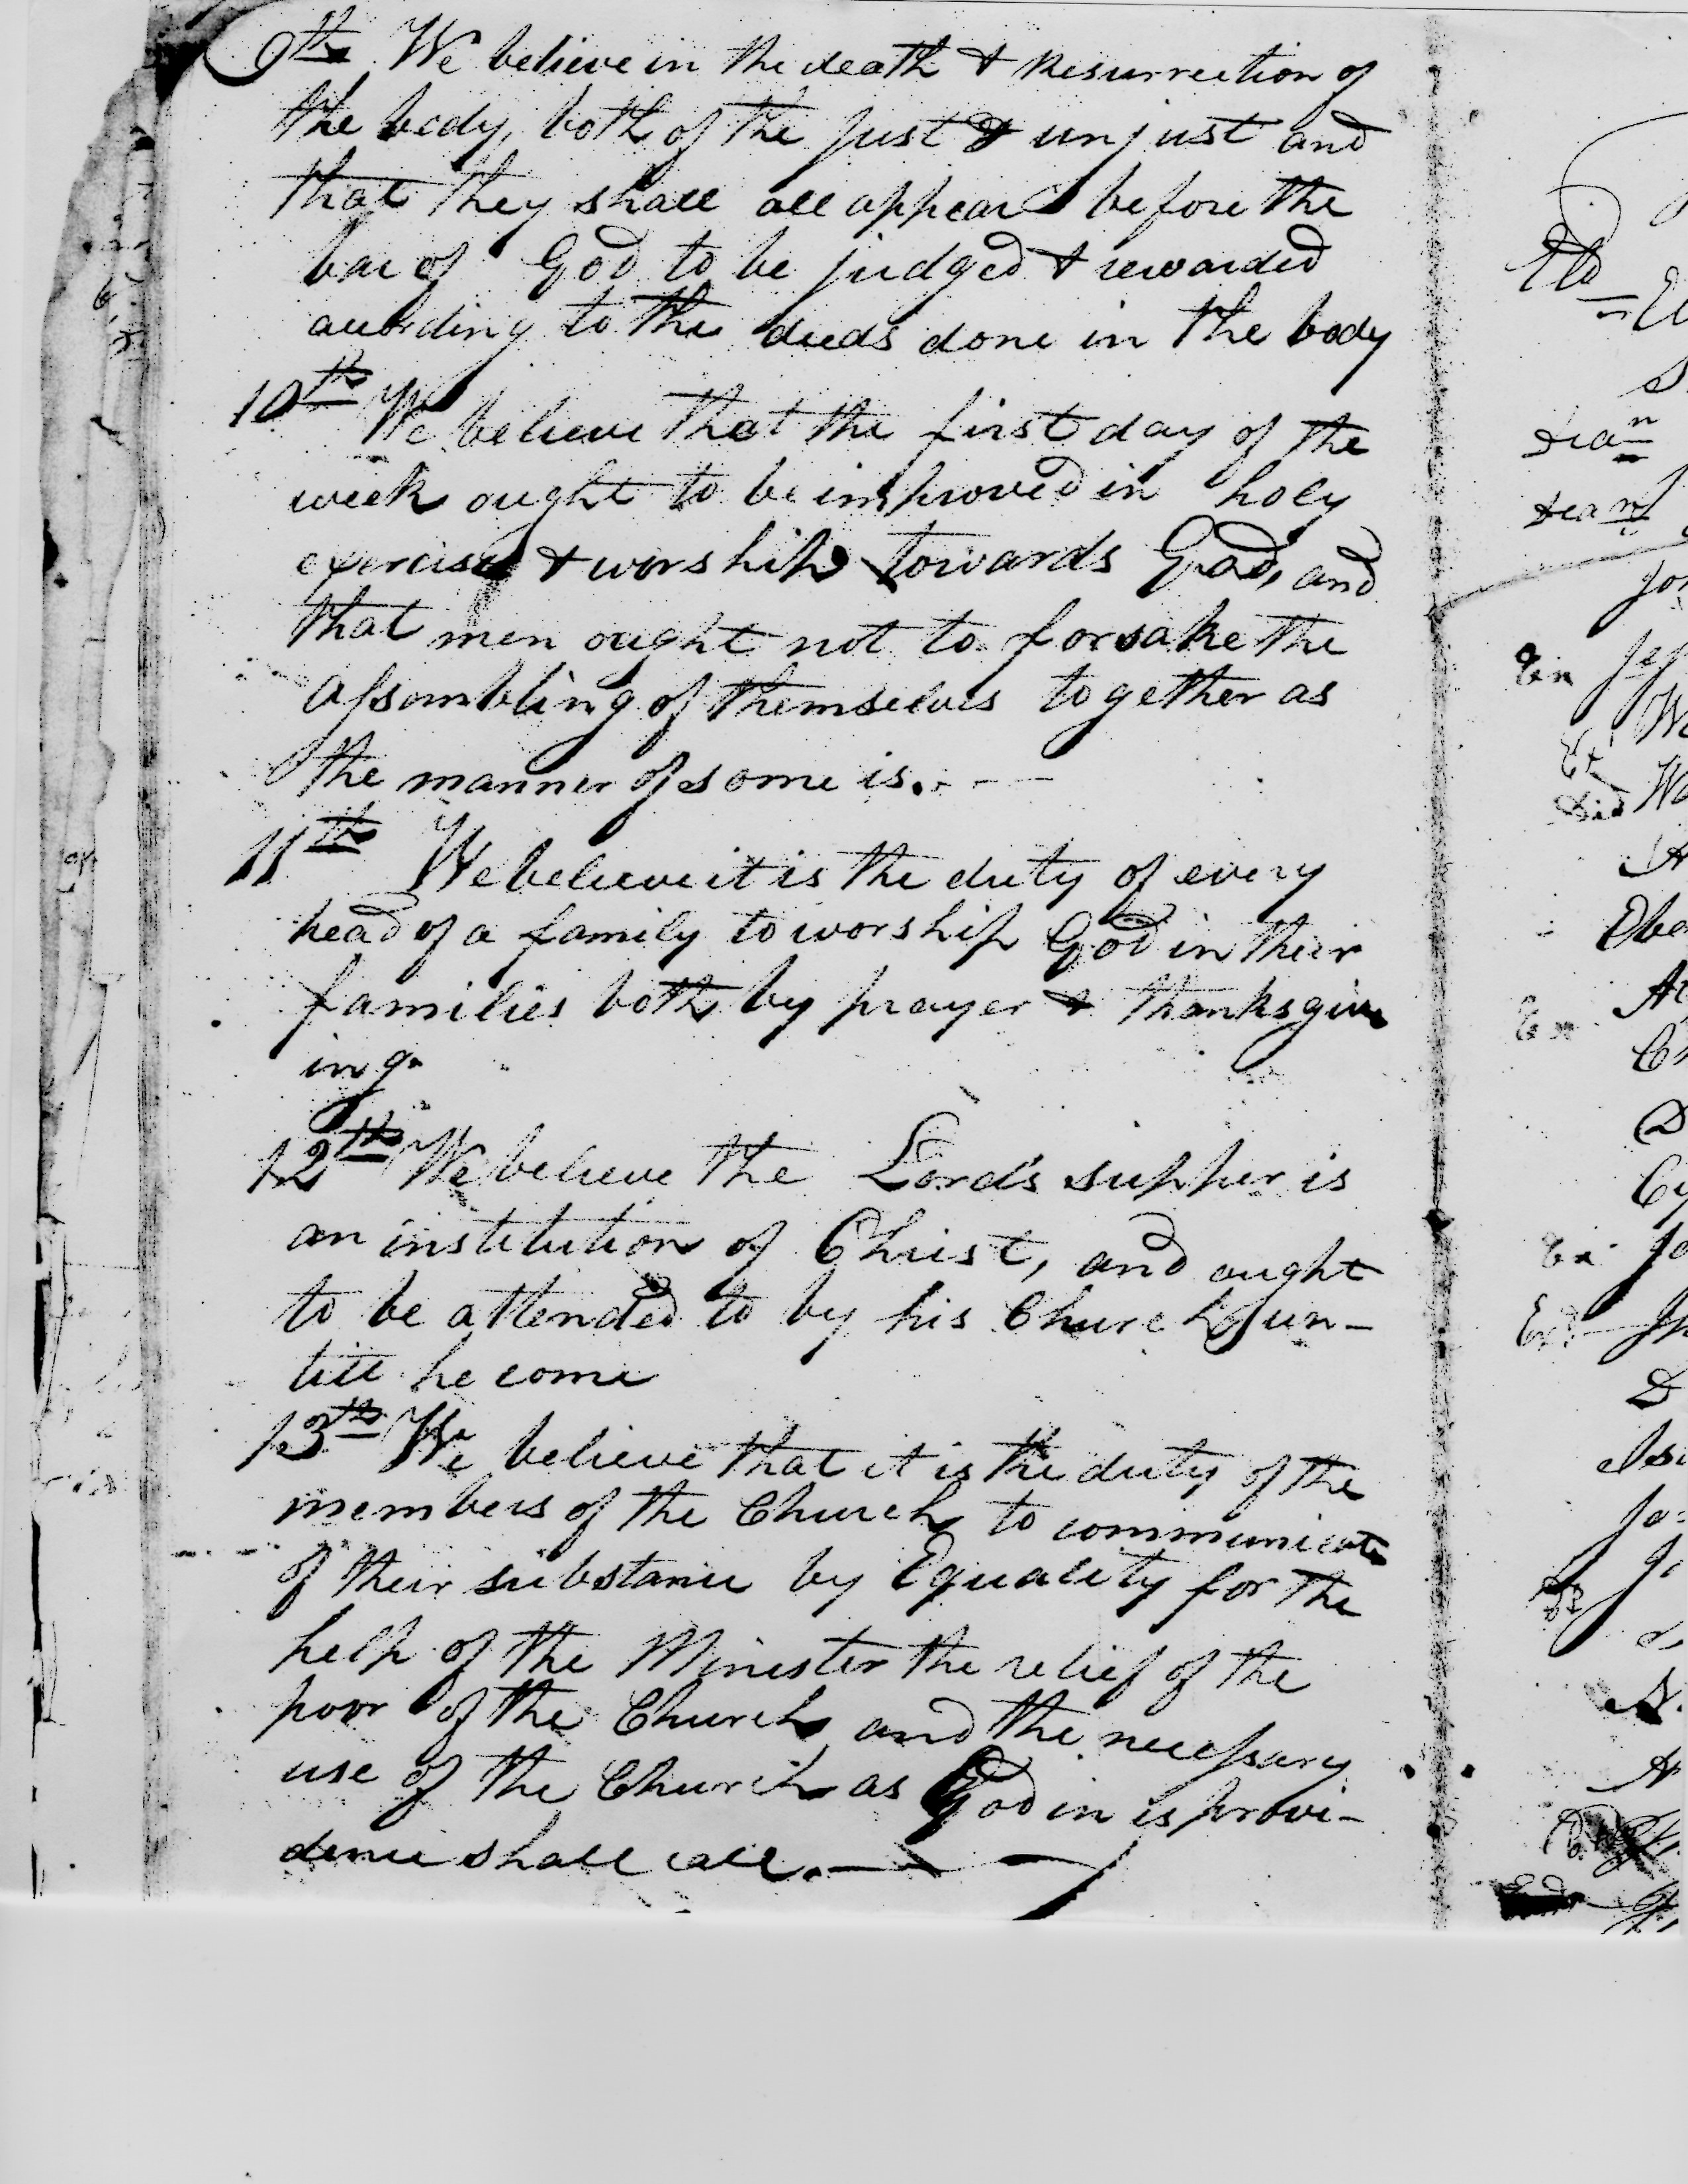 9th We believe in the death & Resurrection of
the body, both of the just & unjust and
that they shall all appear before the
bar of God to be judged & rewarded
according to the deeds done in the body
10th We believe that the first day of the
week ought to be improved in holy
exercise & worship towards God, and
that men ought not to forsake the
assombling of themselves together as
the manner of some is.
11th We believe it is the duty of every
head of a family to worship God in their
families both by prayer & thanksgiv
ing
12th We believe the Lord's supper is
an institution of Christ, and ought
to be attended to by his Church un-
till he come
13th We believe that it is the duty of the
members of the Church to communicate
of their substance by Equality for the
help of the Minister the relief of the
poor of the Church and the necessary
use of the Church as God in is provi-
dence shall call.